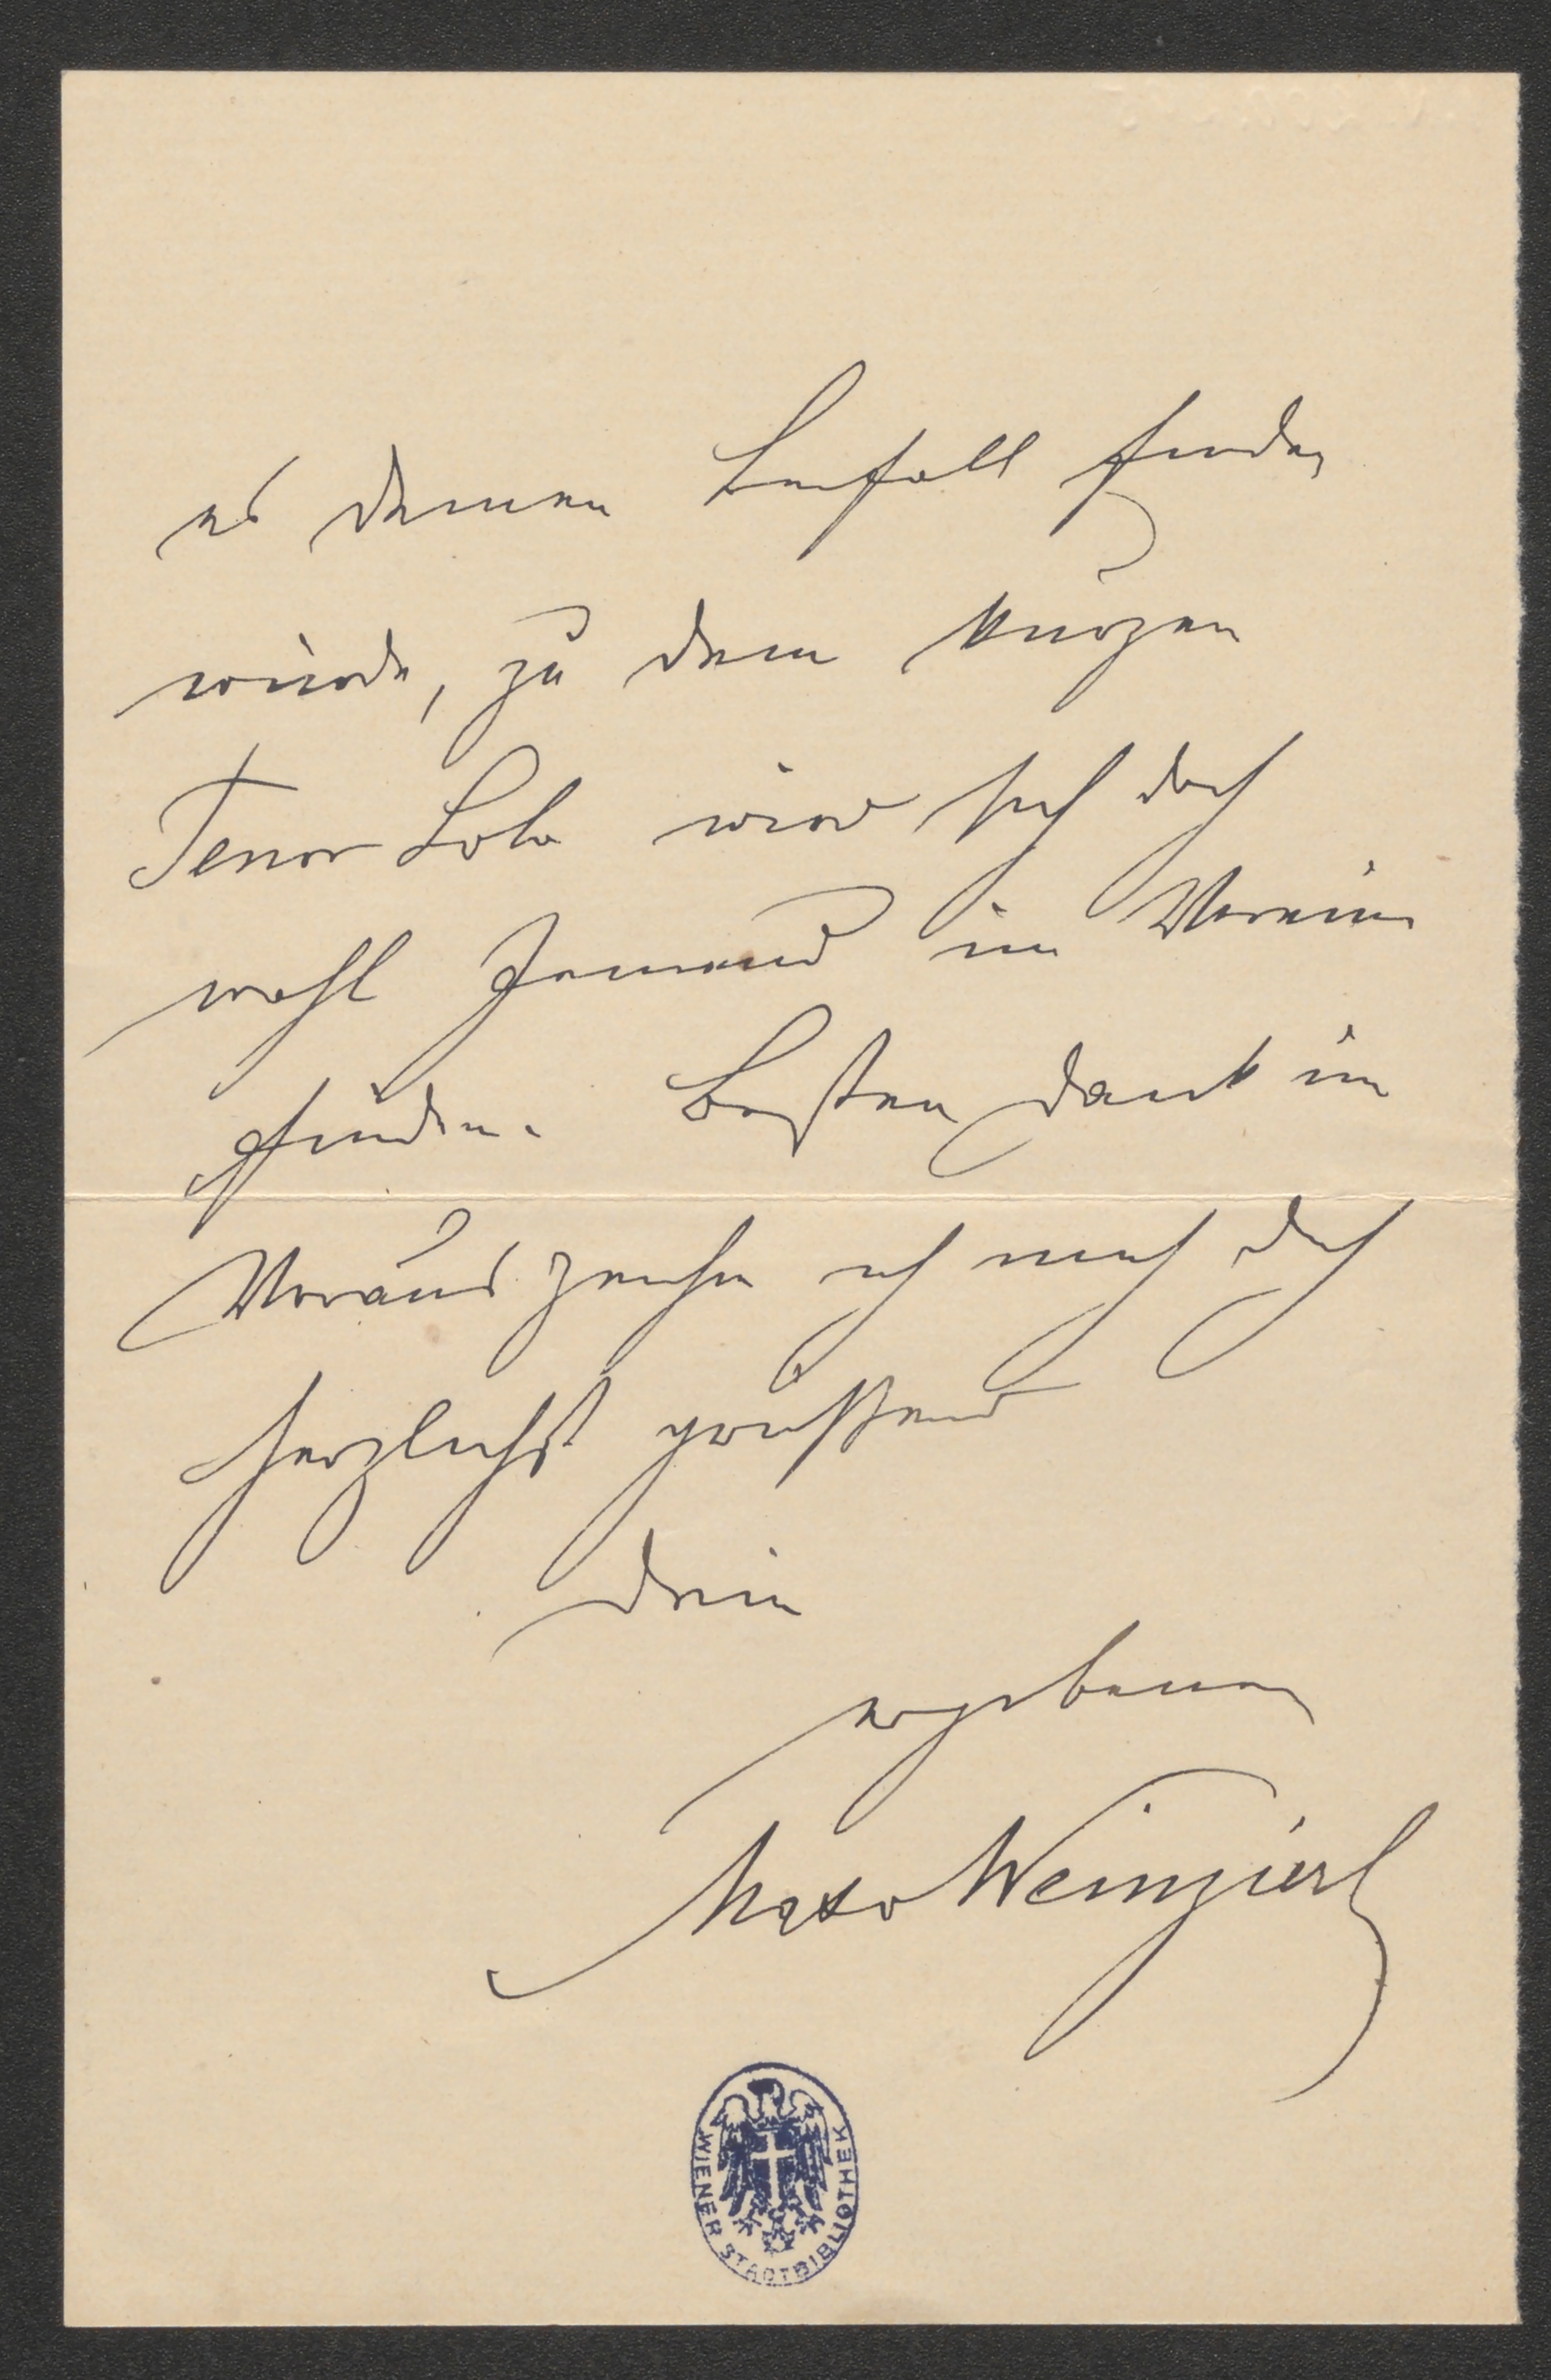 es deinen Beifall finden
würde, zu dem kurzen
Tenor Solo wird sich doch
wohl Jemand im Verein
finden. Besten Dank im
Voraus zeichne ich mich dich
herzlichst grüßend
Dein
ergebener
Max v Weinzierl
WIENER STADTBIBLIOTHEK